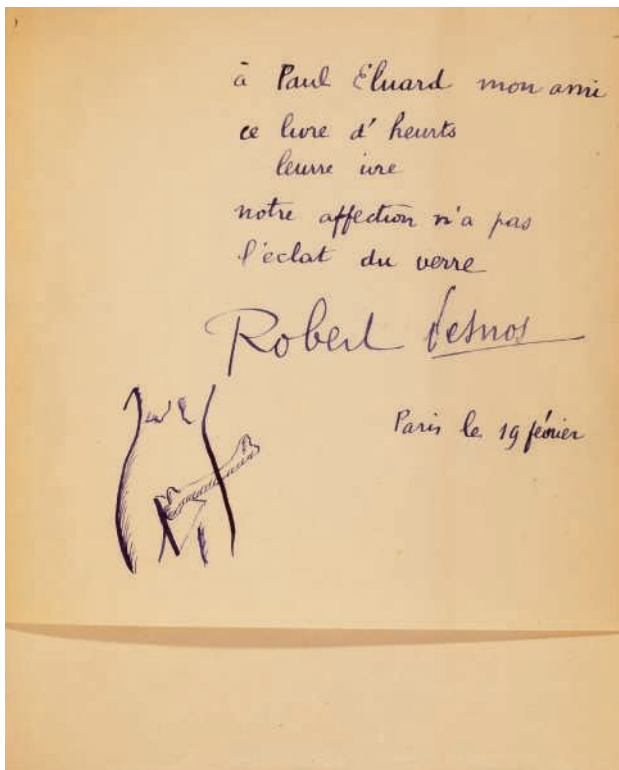 à Paul Eluard mon ami
ce livre d'heurts
leurre ivre
notre affection n'a pas
l'éclat du verre
Robert Desnos
Paris le 19 février